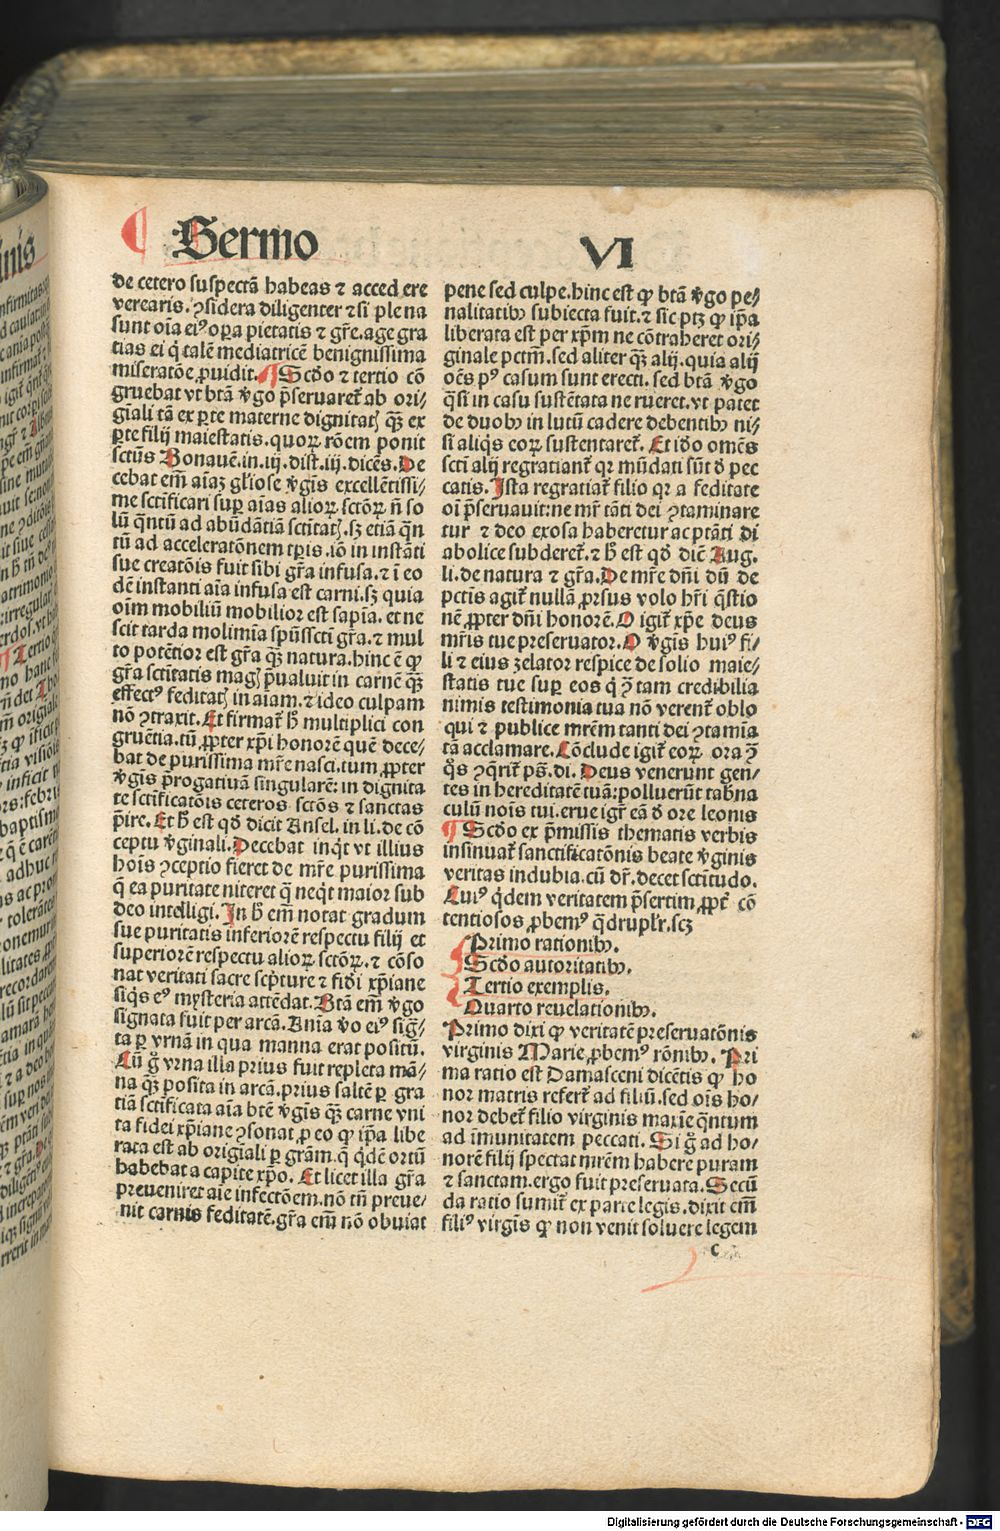 Sermo VI
de cetero suspectā habeas ⁊ accedere
verearis. ꝯsidera diligenter ⁊ si plena
sunt oīa eiꝰ oꝑa pietatis ⁊ gr̄e. age gra
tias ei q̇ talē mediatricē benignissima
miseratōe ꝓuidit. ¶ Scd̄o ⁊ tertio cō
gruebat vt btā v̄go p̄seruaret᷑ ab ori⸗
gīali tā ex ꝑte materne dignitatꝭ qꝫ̄ ex
ꝑte filij maiestatis. quoꝝ rōem ponit
sctūs Bonauē. in. iij. dist. iij. dicēs. De
cebat em̄ aīaꝫ gl̄iose v̄gīs excellētissi⸗
me sctīficari suꝑ aīas alioꝝ sctōꝝ. n̄ so
lū qn̄tū ad abūdātiā sctītatꝭ. sꝫ etiā qn̄
tū ad acceleratōnem tꝑis. iō in instāti
sue creatōis fuit sibi gr̄a infusa. ⁊ ī eo
dē instanti aīa infusa est carni. sꝫ quia
oīm mobiliū mobilior est sapīa. et ne
scit tarda molimīa spūsscti gr̄a. ⁊ mul
to potētior est gr̄a qꝫ̄ natura. hinc ē ꝙ
gr̄a sctītatis magꝭ p̄ualuit in carnē qꝫ̄
effectꝰ feditatꝭ in aīam. ⁊ ideo culpam
nō ꝯtraxit. Et firmat᷑ h̄ multiplici con
gruētia. tū ꝓpter xp̄i honorē quē dece⸗
bat de purissima mr̄e nasci. tum ꝓpter
v̄gīs p̄rogatiuā singularē: in dignita
te sctīficatōis ceteros sctōs ⁊ sanctas
p̄ire. Et h̄ est qd̄ dicit Ansel. in li. de cō
ceptu v̄ginali. Decebat inq̇t vt illius
hoīs ꝯceptio fieret de mr̄e purissima
q̄ ea puritate niteret q̄ neq̇t maior sub
deo intelligi. In h̄ em̄ notat gradum
sue puritatis inferiorē respectu filij et
superiorē respectu alioꝝ sctōꝝ. ⁊ cōso
nat veritati sacre scp̄ture ⁊ fidī xp̄iane
siq̇s eꝰ mysteria attēdat. Btā em̄ v̄go
signata fuit per arcā. Anīa v̄o eiꝰ sig̅⸗
ta ꝑ vrnā in qua manna erat positū.
Cū g̊ vrna illa prius fuit repleta mā⸗
na qꝫ̄ posita in arcā. prius saltē ꝑ gra
tiā sctīficata aīa btē v̄gīs qꝫ̄ carne vni
ta fidei xp̄iane ꝯsonat. ꝓ eo ꝙ ip̄a libe
rata est ab origīali ꝑ grām. q̄ q̇dē ortū
habebat a capite xp̄o. Et licet illa gr̄a
preueniret aīe infectōem. nō tn̄ preue⸗
nit carnis feditatē. gr̄a em̄ nō obuiat
pene sed culpe. hinc est ꝙ btā v̄go pe⸗
nalitatibꝰ subiecta fuit. ⁊ sic ptꝫ ꝙ ip̄a
liberata est per xp̄m ne cōtraheret ori⸗
ginale pctm̄. sed aliter qꝫ̄ alij. quia alij
oēs pꝰ casum sunt erecti. sed btā v̄go
q̄si in casu sustētata ne rueret. vt patet
de duobꝰ in lutū cadere debentibꝰ ni⸗
si aliq̇s eoꝝ sustentaret᷑. Et iđo omēs
scti alij regratiant᷑ qꝛ mūdati sūt đ pec
catis. Ista regratiat᷑ filio qꝛ a feditate
oī p̄seruauit: ne mr̄ tāti dei ꝯtaminare
tur ⁊ deo exosa haberetur ac ptāti di
abolice subderet᷑. ⁊ h̄ est qd̄ diē Aug.
li. de natura ⁊ gr̄a. De mr̄e dn̄i dū de
pctis agit᷑ nullā ꝓrsus volo hr̄i q̄stio
nē ꝓpter dn̄i honorē. O igit᷑ xp̄e deus
mr̄is tue preseruator. O v̄gīs huiꝰ fi⸗
li ⁊ eius zelator respice de solio maie⸗
statis tue suꝑ eos q̇ ꝯ̄ tam credibilia
nimis testimonia tua nō verent᷑ oblo
qui ⁊ publice mrēm tanti dei ꝯtamia
tā acclamare. Cōclude igit᷑ eoꝝ ora ꝯ̄
q̊s ꝯq̄rit᷑ ps̄. di. Deus venerunt gen⸗
tes in hereditatē tuā: polluerūt tab̄na
culū noīs tui. erue igit᷑ eā đ ore leonis
¶ Scd̄o ex p̄missis thematis verbis
insinuat᷑ sanctificatōnis beate v̄ginis
veritas indubia. cū dr̄. decet sctītudo.
Cuiꝰ q̇dem veritatem p̄sertim ꝓpt᷑ cō
tentiosos ꝓbemꝰ q̄drupl̄r. scꝫ
Primo rationibꝰ.
Scd̄o autoritatibꝰ.
Tertio exemplis.
Quarto reuelationibꝰ.
Primo dixi ꝙ veritatē preseruatōnis
virginis Marie ꝓbemꝰ rōnibꝰ. Pri
ma ratio est Damasceni dicētis ꝙ ho
nor matris refert᷑ ad filiū. sed oīs ho⸗
nor debet᷑ filio virginis marie qn̄tum
ad īmunitatem peccati. Si g̊ ad ho⸗
norē filij spectat mrēm habere puram
⁊ sanctam. ergo fuit preseruata. Secū
da ratio sumit᷑ ex parte legis. dixit em̄
filiꝰ virgīs ꝙ non venit soluere legem
c
Digitalisierung gefördert durch die Deutsche Forschungsgemeinschaft - DFG